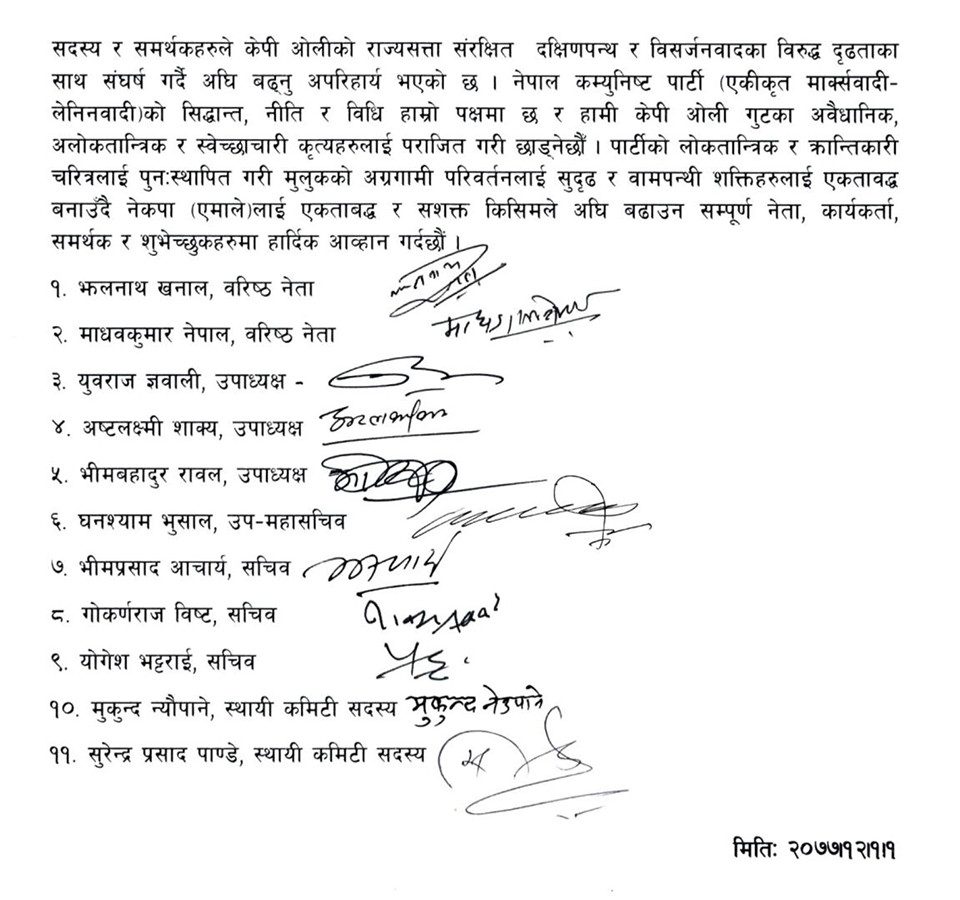 सदस्य र समर्थकहरुले केपी ओलीको राज्यसत्ता संरक्षित दक्षिणपन्थ र विसर्जनवादका विरुद्ध दृढताका
साथ संघर्ष गर्दै अघि बढ्नु अपरिहार्य भएको छ । नेपाल कम्युनिष्ट पार्टी (एकीकृत मार्क्सवादी-
लेनिनवादी)को सिद्धान्त, नीति र विधि हाम्रो पक्षमा छ र हामी केपी ओली गुटका अवैधानिक,
अलोकतान्त्रिक र स्वेच्छाचारी कृत्यहरुलाई पराजित गरी छाड्नेछौँ । पार्टीको लोकतान्त्रिक र क्रान्तिकारी
चरित्रलाई पुन:स्थापित गरी मुलुकको अग्रगामी परिवर्तनलाई सुदृढ र वामपन्थी शक्तिहरुलाई एकताबद्ध
बनाउँदै नेकपा (एमाले)लाई एकताबद्ध र सशक्त किसिमले अघि बढाउन सम्पूर्ण नेता, कार्यकर्ता,
समर्थक र शुभेच्छुकहरुमा हार्दिक आव्हान गर्दछौँ ।
१. झलनाथ खनाल, वरिष्ठ नेता
२. माधवकुमार नेपाल, वरिष्ठ नेता
३. युवराज ज्ञवाली, उपाध्यक्ष -
४. अष्टलक्ष्मी शाक्य, उपाध्यक्ष
५. भीमबहादुर रावल, उपाध्यक्ष
६. घनश्याम भुसाल, उप-महासचिव
७. भीमप्रसाद आचार्य, सचिव
८. गोकर्णराज विष्ट, सचिव
९. योगेश भट्टराई, सचिव
१०. मुकुन्द न्यौपाने, स्थायी कमिटी सदस्य मुकुन्द नेउपाने
११. सुरेन्द्र प्रसाद पाण्डे, स्थायी कमिटी सदस्य
मिति: २०७७।१२।१।१